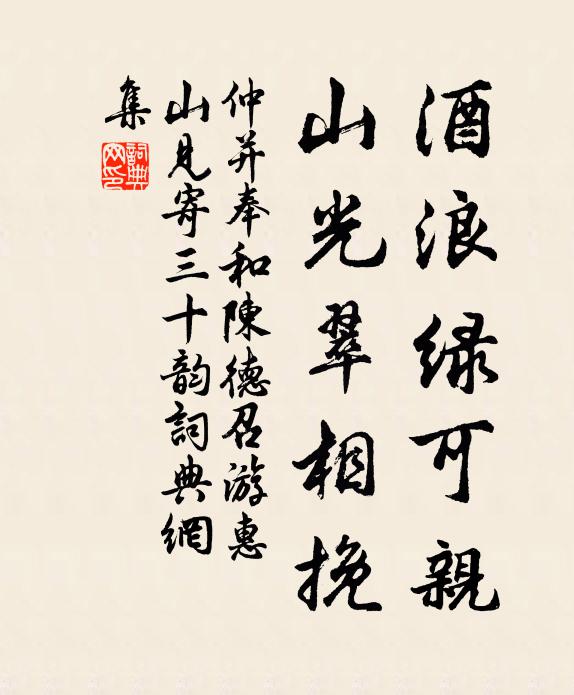 酒浪绿可親
山光翠相挽
仲并奉和陳德召游惠
山見寄三十韵詞典網
集
詞典網印